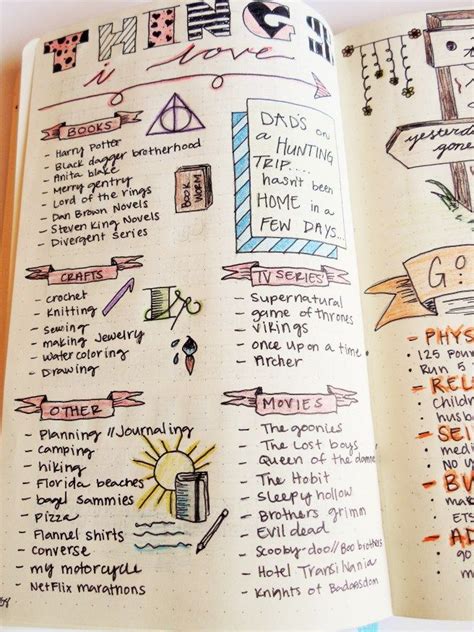 THINGS
i love
BOOKS
- Harry Potter
- Black dagger brotherhood
- Anita blake
- Merry gentry
- Lord of the rings
- Dan Brown Novels
- Steven King Novels
- Divergent Series
BOOK WORM
DAD'S on
a HUNTING
TRIP....
hasn't been
HOME in a
FEW DAYS...
CRAFTS
- crochet
- Knitting
- sewing
- making Jewelry
- water coloring
- Drawing
TV SERIES
- Supernatural
- game of thrones
- vikings
- once upon a time
- Archer
OTHER
- Planning // Journaling
- camping
- hiking
- Florida beaches
- bagel sammies
- Pizza
- Flannel shirts
- converse
- my motorcycle
- NetFlix marathons
MOVIES
- The goonies
- The Lost boys
- Queen of the damne
- The Hobit
- Sleepy hollow
- Brothers grimm
- Evil dead
- Scooby-doo // Boo brothers
- Hotel Transilvania
- Knights of Badassdom
yesterday
gone
GO
- PHYS
- 125 Poun
- Run 5
- REL
- Child
- husb
- SEL
- medi
- NO
- BU
- ma
ETS
- AD
- go
-